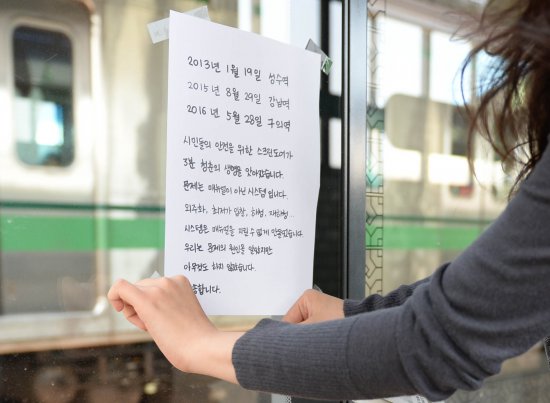 2013년 1월 19일 성수역
2015년 8월 29일 강남역
2016년 5월 28일 구의역
시민들의 안전을 위한 스크린도어가
3분 청춘의 생명을 앗아갔습니다.
문제는 매뉴얼이 아닌 시스템입니다.
외주화, 최저가 입찰, 하청, 재하청...
시스템은 매뉴얼을 지킬 수 없게 만들었습니다.
우리는 문제의 원인을 알았지만
아무것도 하지 않았습니다.
통합니다.